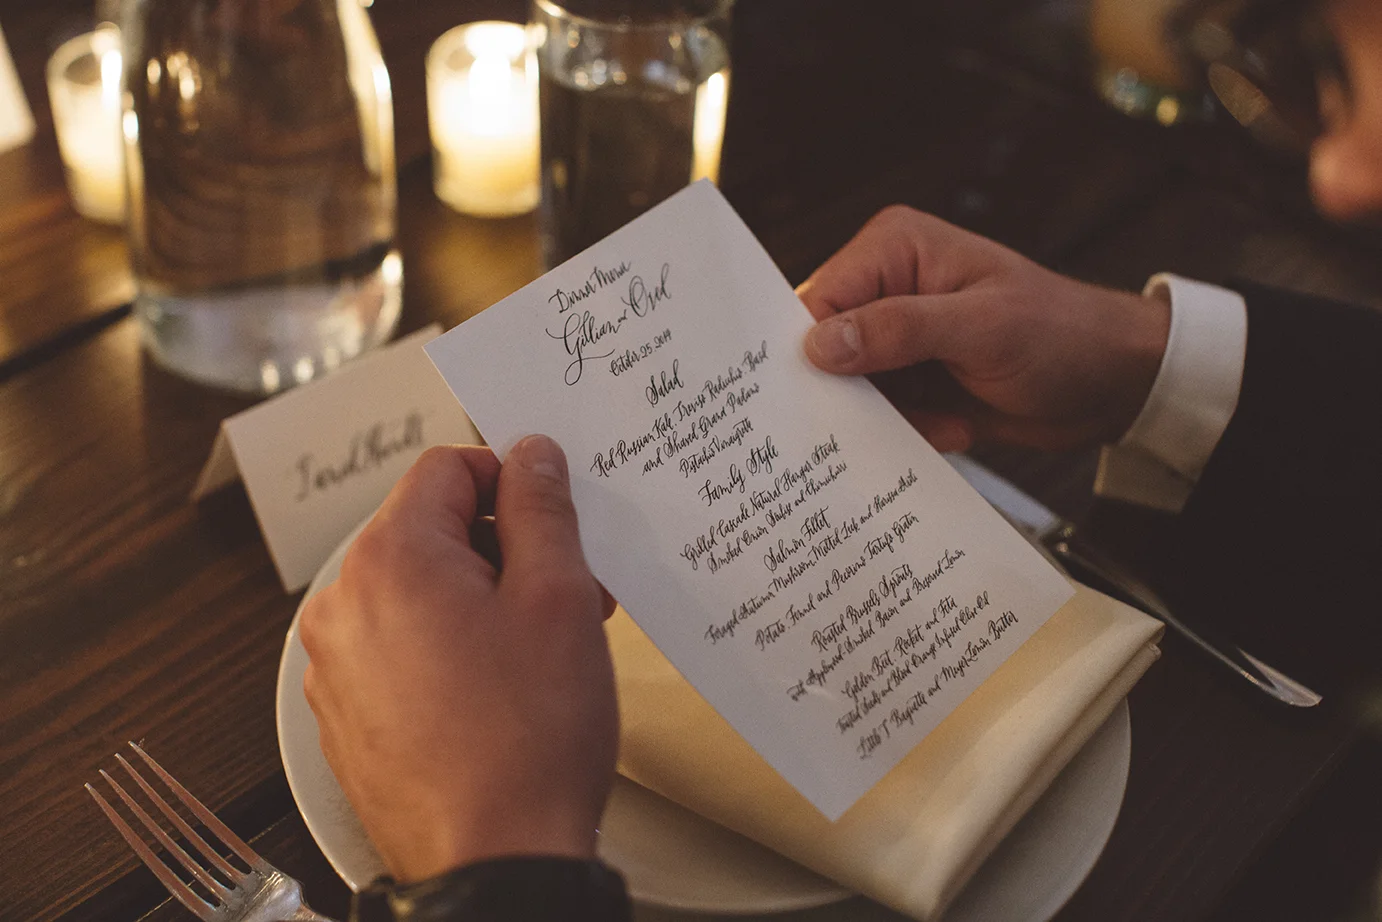 Dinner Menu
Gillian and Ored
October 25 2014
Salad
Red Russian Kale, Treviso Radicchio, Basil
and Shaved Grana Padano
Pistachio Vinaigrette
Family Style
Grilled Cascade Natural Hanger Steak
Smoked Onion Soubise and Chimichurri
Salmon Fillet
Foraged Autumn Mushroom, Melted Leek and Harissa Aioli
Potato, Fennel and Pecorino Tartufo Gratin
Roasted Brussels Sprouts
with Applewood-Smoked Bacon and Preserved Lemon
Golden Beet, Rocket and Feta
Toasted Seeds and Blood Orange Infused Olive Oil
Little T Baguette and Meyer Lemon Butter